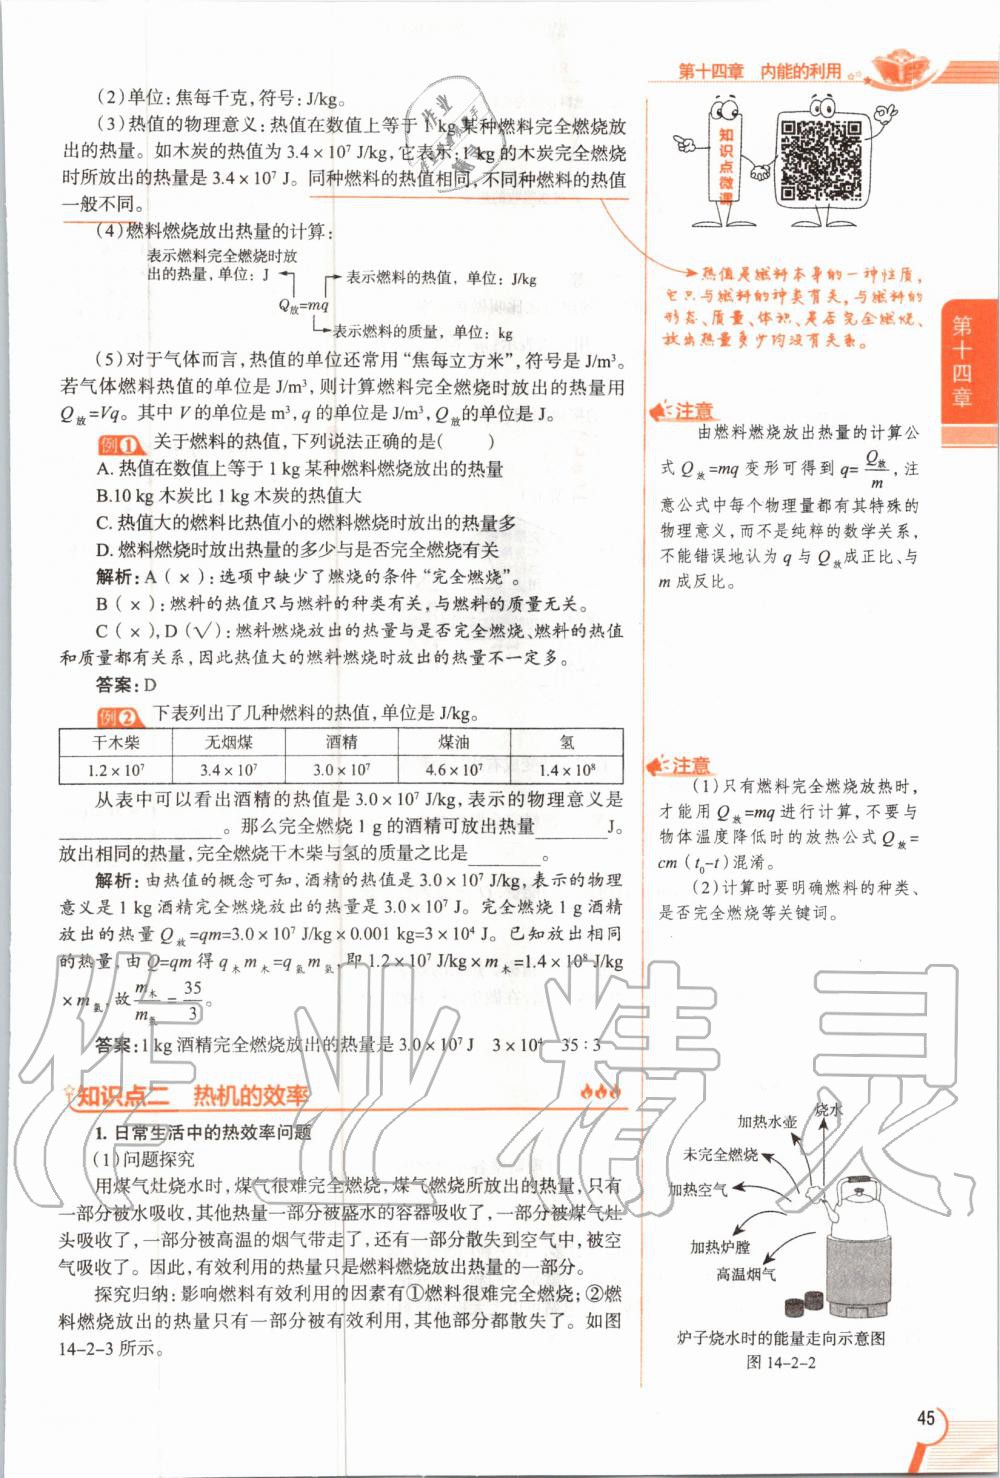 第十四章 内能的利用
(2)单位:焦每千克,符号:J/kg。
(3)热值的物理意义:热值在数值上等于 1 kg 某种燃料完全燃烧放
出的热量。如木炭的热值为 3.4×10⁷ J/kg,它表示:1 kg 的木炭完全燃烧
时所放出的热量是 3.4×10⁷ J。同种燃料的热值相同,不同种燃料的热值
一般不同。
(4)燃料燃烧放出热量的计算:
表示燃料完全燃烧时放
出的热量,单位:J
表示燃料的热值,单位:J/kg
Q放=mq
表示燃料的质量,单位:kg
(5)对于气体而言,热值的单位还常用“焦每立方米”,符号是 J/m³。
若气体燃料热值的单位是 J/m³,则计算燃料完全燃烧时放出的热量用
Q放=Vq。其中 V 的单位是 m³,q 的单位是 J/m³,Q放的单位是 J。
例1 关于燃料的热值,下列说法正确的是( )
A. 热值在数值上等于 1 kg 某种燃料燃烧放出的热量
B.10 kg 木炭比 1 kg 木炭的热值大
C. 热值大的燃料比热值小的燃料燃烧时放出的热量多
D. 燃料燃烧时放出热量的多少与是否完全燃烧有关
解析:A(×):选项中缺少了燃烧的条件“完全燃烧”。
B(×):燃料的热值只与燃料的种类有关,与燃料的质量无关。
C(×),D(√):燃料燃烧放出的热量与是否完全燃烧、燃料的热值
和质量都有关系,因此热值大的燃料燃烧时放出的热量不一定多。
答案:D
例2 下表列出了几种燃料的热值,单位是 J/kg。
干木柴 无烟煤 酒精 煤油 氢
1.2×10⁷ 3.4×10⁷ 3.0×10⁷ 4.6×10⁷ 1.4×10⁸
从表中可以看出酒精的热值是 3.0×10⁷ J/kg,表示的物理意义是
________________。那么完全燃烧 1 g 的酒精可放出热量_______J。
放出相同的热量,完全燃烧干木柴与氢的质量之比是_______。
解析:由热值的概念可知,酒精的热值是 3.0×10⁷ J/kg,表示的物理
意义是 1 kg 酒精完全燃烧放出的热量是 3.0×10⁷ J。完全燃烧 1 g 酒精
放出的热量 Q放=qm=3.0×10⁷ J/kg×0.001 kg=3×10⁴ J。已知放出相同
的热量,由 Q=qm 得 q木m木=q氢m氢,即 1.2×10⁷ J/kg×m木=1.4×10⁸ J/kg
×m氢,故 m木/m氢=35/3。
答案:1 kg 酒精完全燃烧放出的热量是 3.0×10⁷ J 3×10⁴ 35:3
知识点二 热机的效率
1. 日常生活中的热效率问题
(1)问题探究
用煤气灶烧水时,煤气很难完全燃烧,煤气燃烧所放出的热量,只有
一部分被水吸收,其他热量一部分被盛水的容器吸收了,一部分被煤气灶
头吸收了,一部分被高温的烟气带走了,还有一部分散失到空气中,被空
气吸收了。因此,有效利用的热量只是燃料燃烧放出热量的一部分。
探究归纳:影响燃料有效利用的因素有①燃料很难完全燃烧;②燃
料燃烧放出的热量只有一部分被有效利用,其他部分都散失了。如图
14-2-3 所示。
知识点微课
热值是燃料本身的一种性质,
它只与燃料的种类有关,与燃料的
形态、质量、体积、是否完全燃烧、
放出热量多少均没有关系。
第十四章
注意
由燃料燃烧放出热量的计算公
式 Q放=mq 变形可得到 q=Q放/m,注
意公式中每个物理量都有其特殊的
物理意义,而不是纯粹的数学关系,
不能错误地认为 q 与 Q放成正比、与
m 成反比。
注意
(1)只有燃料完全燃烧放热时,
才能用 Q放=mq 进行计算,不要与
物体温度降低时的放热公式 Q放=
cm(t₀-t)混淆。
(2)计算时要明确燃料的种类、
是否完全燃烧等关键词。
烧水
加热水壶
未完全燃烧
加热空气
加热炉膛
高温烟气
炉子烧水时的能量走向示意图
图 14-2-2
45
作业精灵